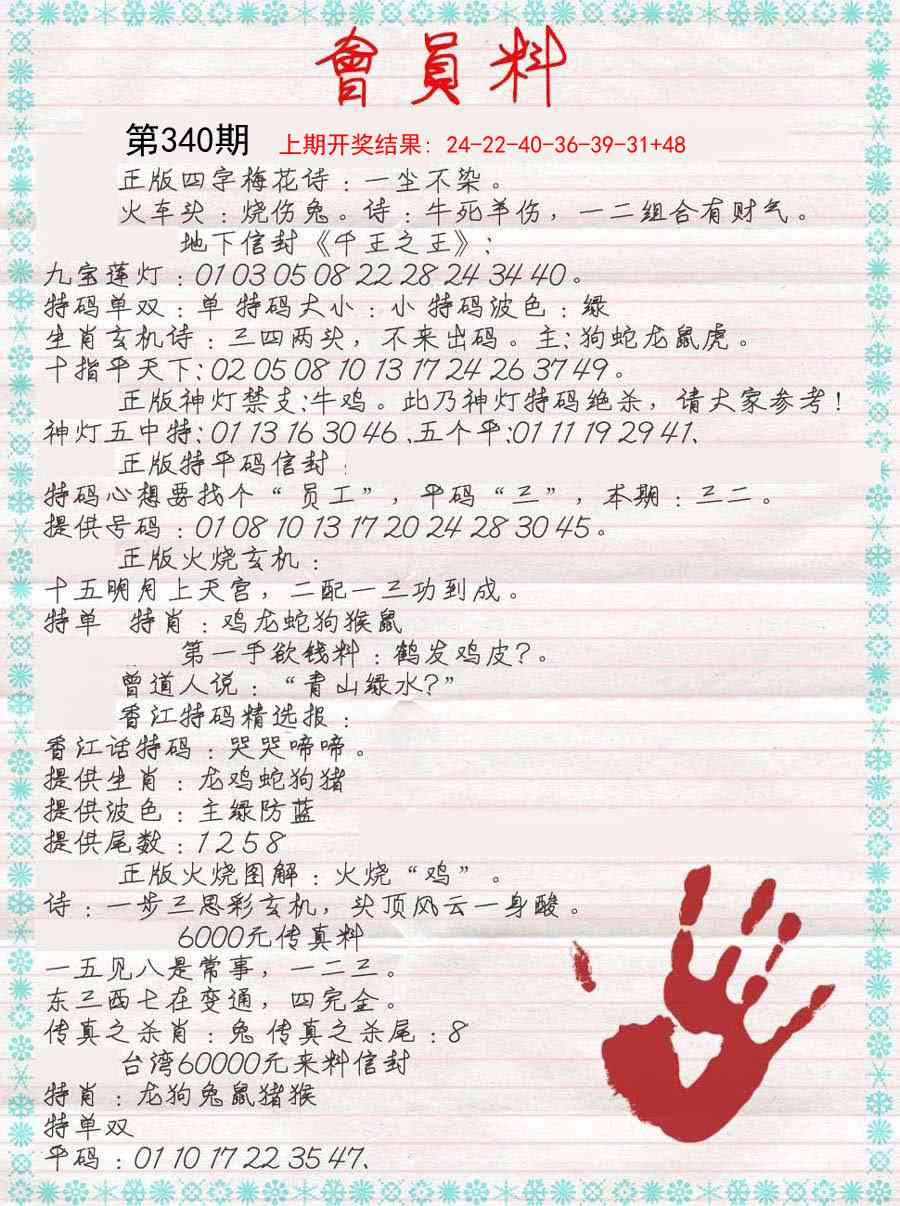 會員料
第340期 上期开奖结果: 24-22-40-36-39-31+48
正版四字梅花诗：一尘不染。
火车头：烧伤兔。诗：牛死羊伤，一二组合有财气。
地下信封《千王之王》：
九宝莲灯：01 03 05 08 22 28 24 34 40。
特码单双：单 特码大小：小 特码波色：绿
生肖玄机诗：三四两头，不来出码。主：狗蛇龙鼠虎。
十指平天下：02 05 08 10 13 17 24 26 37 49。
正版神灯禁支：牛鸡。此乃神灯特码绝杀，请大家参考！
神灯五中特：01 13 16 30 46、五个平：01 11 19 29 41、
正版特平码信封：
特码心想要找个“员工”，平码“三”，本期：三二。
提供号码：01 08 10 13 17 20 24 28 30 45。
正版火烧玄机：
十五明月上天宫，二配一三功到成。
特单 特肖：鸡龙蛇狗猴鼠
第一手欲钱料：鹤发鸡皮?。
曾道人说：“青山绿水?”
香江特码精选报：
香江话特码：哭哭啼啼。
提供生肖：龙鸡蛇狗猪
提供波色：主绿防蓝
提供尾数：1 2 5 8
正版火烧图解：火烧“鸡”。
诗：一步三思彩玄机，头顶风云一身酸。
6000元传真料
一五见八是常事，一二三。
东三西七在变通，四完金。
传真之杀肖：兔 传真之杀尾：8
台湾60000元来料信封
特肖：龙狗兔鼠猪猴
特单双
平码：01 10 17 22 35 47、